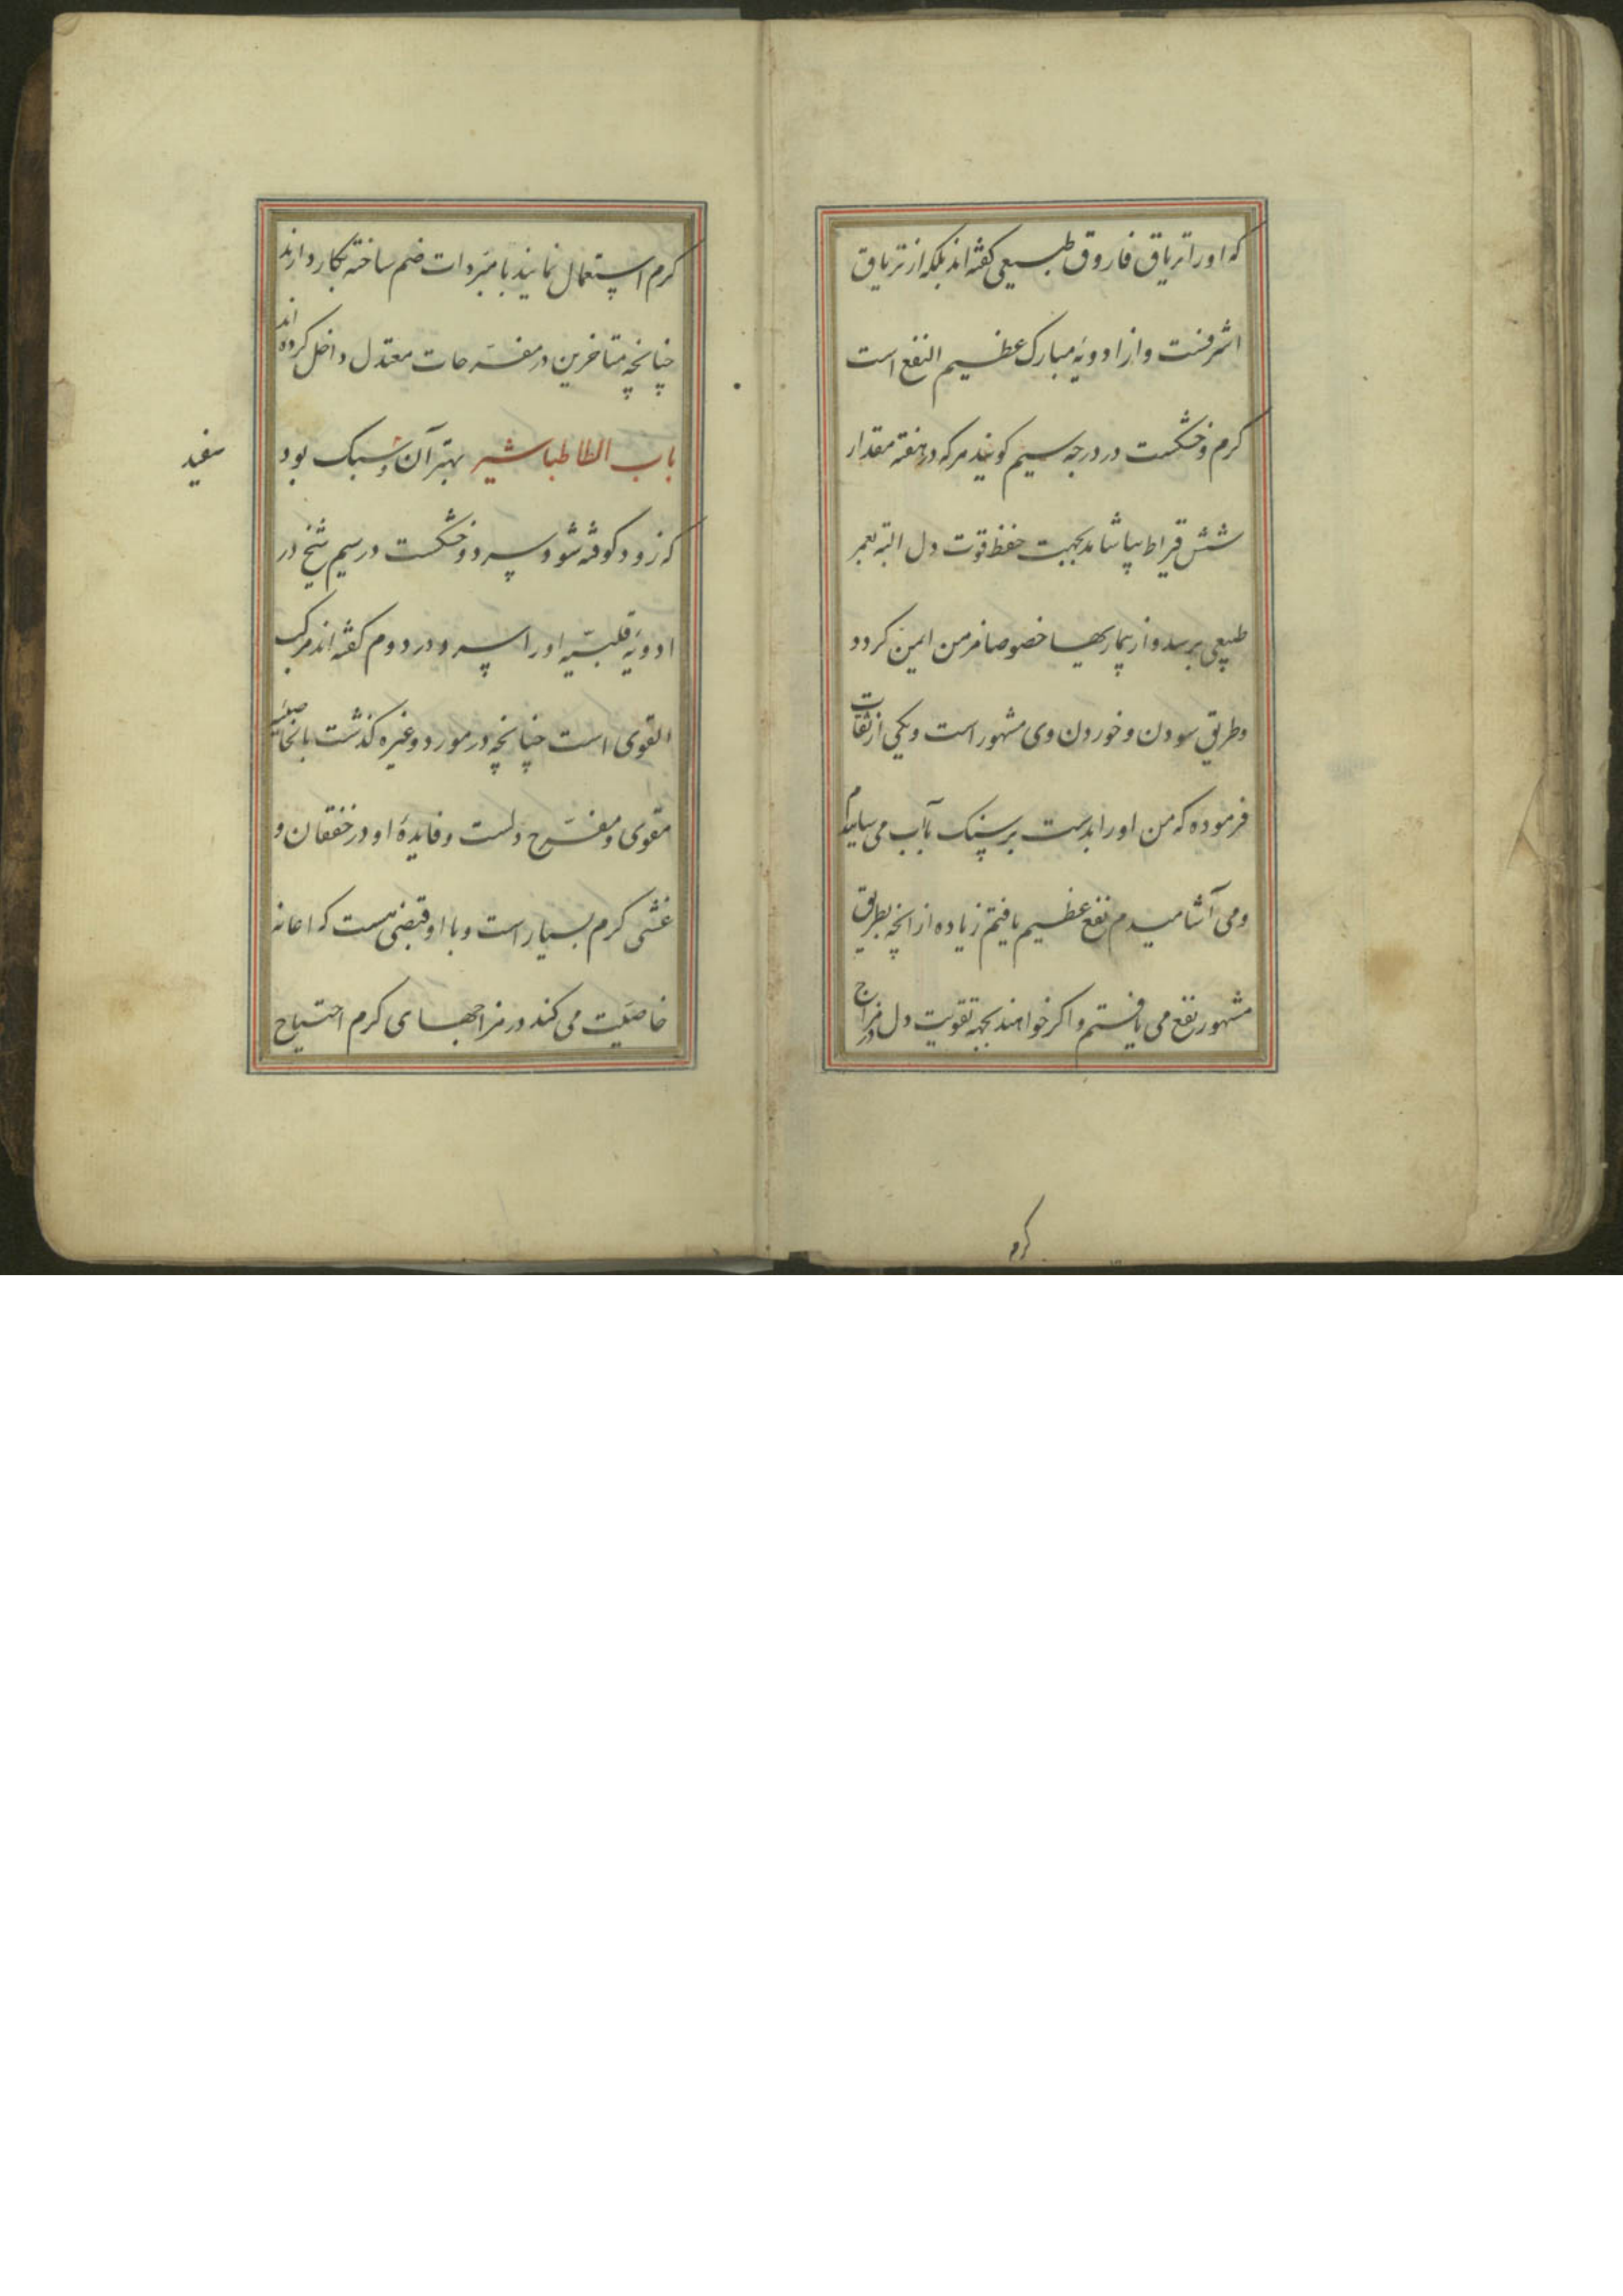 که اورا تریاق فاروق طبیعی کفته اند بلکه از تریاق
اشرفست و از ادویهٔ مبارک عظیم النفع است
کرم و خشکست در درجه سیم کویند هرکه در هفته مقدار
شش قیراط بیاشامد بجهت حفظ قوت دل البته بعمر
طبیعی برسد و از بیماریها خصوصا مزمن ایمن کردد
و طریق سودن و خوردن وی مشهور است و یکی از ثقات
فرموده که من اورا بدست بر سنک بآب می ساییدم
و می آشامیدم نفع عظیم یافتم زیاده از انچه بطریق
مشهور نفع می یافتم و اکر خواهند بجهة تقویت دل در مزاج
کرم
کرم استعمال نمایند با مبردات ضم ساخته بکار دارند
چنانچه متاخرین در مفرّحات معتدل داخل کرده اند
باب الطا طباشیر بهتر آن و سبک بود
سفید
که زود کوفته شود و سرد و خشکست در سیم شیخ در
ادویهٔ قلبیّه اورا سرد در دوم کفته اند مرکب
القوی است چنانچه در مورد و غیره کذشت بالخاصیّه
مقوی و مفرّح دلست و فایدهٔ او در خفقان و
غشی کرم بسیار است و با او قبضی هست که اعانه
خاصیّت می کند در مزاجهای کرم احتیاج